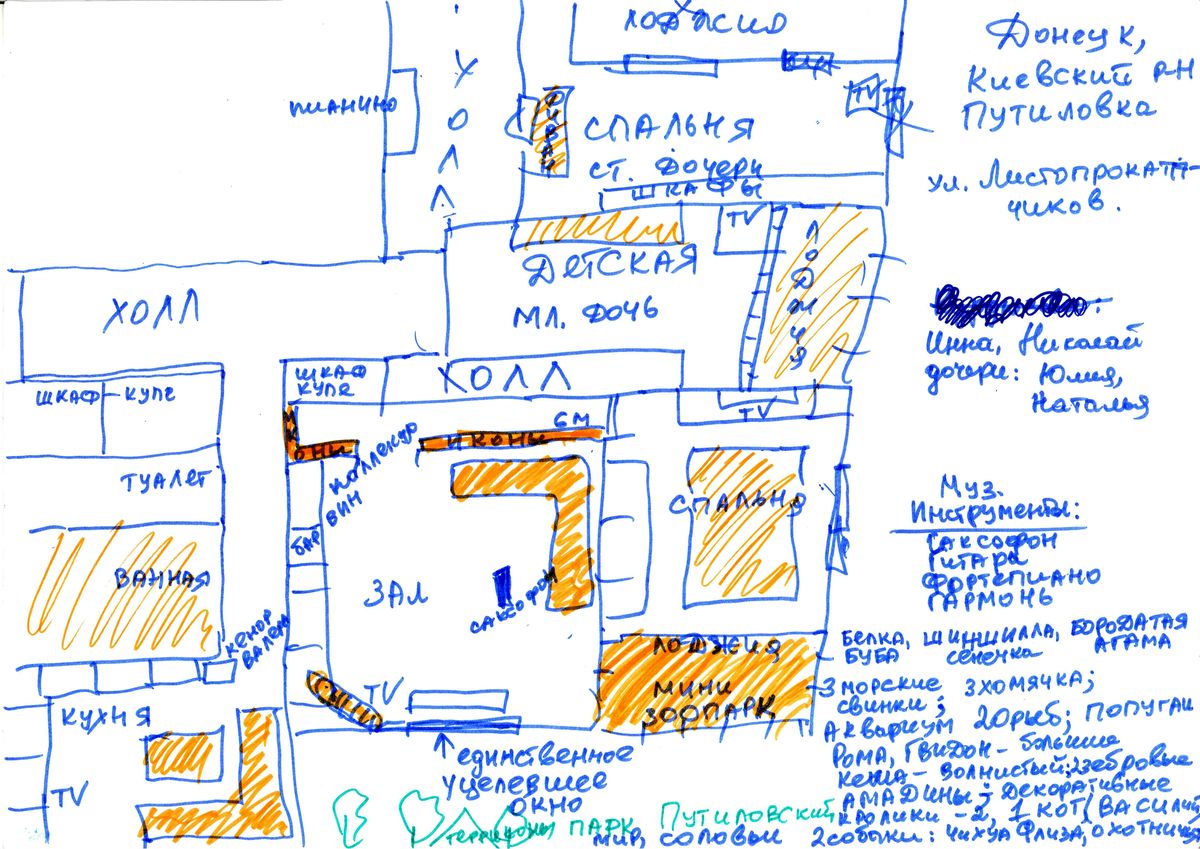 ЛОДЖИЯ
Донецк,
Киевский р-н
Путиловка
ул. Листопрокат-
чиков.
ПИАНИНО
ХОЛЛ
ДИВАН
TV
СПАЛЬНЯ
ст. Дочери
ШКАФЫ
TV
ЛОДЖИЯ
ДЕТСКАЯ
МЛ. ДОЧЬ
ХОЛЛ
Инна, Николай
дочери: Юлия,
Наталья
ШКАФ
КУПЕ
ХОЛЛ
ШКАФ-КУПЕ
TV
ИКОНЫ
ИКОНЫ
6 М
КОЛЛЕКЦ
ВИН
БАР
ТУАЛЕТ
СПАЛЬНЯ
Муз.
Инструменты:
САКСОФОН
ГИТАРА
ФОРТЕПИАНО
ГАРМОНЬ
ВАННАЯ
ЗАЛ
САКСОФОН
КЕНОР
ВАЛЕРА
ЛОДЖИЯ
МИНИ
ЗООПАРК
БЕЛКА, ШИНШИЛЛА, БОРОДАТАЯ
БУБА СЕНЕЧКА АГАМА
3 МОРСКИЕ 3 ХОМЯЧКА;
СВИНКИ;
АКВАРИУМ 20 РЫБ; ПОПУГАИ
РОМА, ГВИДОН - большие
КЕША - ВОЛНИСТЫЙ; ЗЕБРОВЫЕ
АМАДИНЫ; ДЕКОРАТИВНЫЕ
КРОЛИКИ - 2, 1 КОТ (ВАСИЛИЙ
2 собаки: ЧИХУА ФЛИЗА, ОХОТНИЧ
КУХНЯ
TV
TV
единственное
уцелевшее
окно
ПАРК ПУТИЛОВСКИЙ
МИР, СОЛОВЬИ